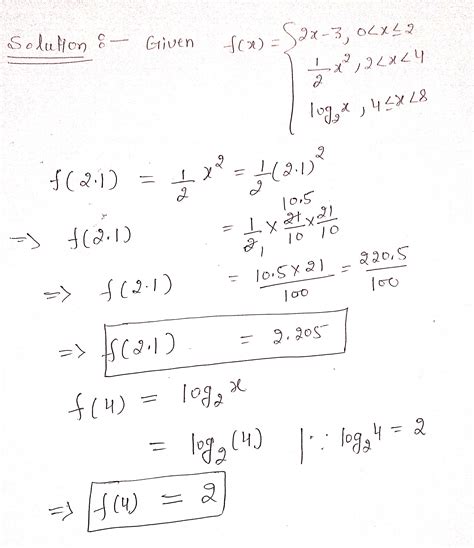 Solution :- Given f(x) = { 2x-3, 0<x≤2
1/2 x², 2<x<4
log₂x, 4≤x<8
f(2.1) = 1/2 x² = 1/2 (2.1)²
10.5
=> f(2.1) = 1/2 × 21/10 × 21/10
1
=> f(2.1) = 10.5×21/100 = 220.5/100
=> f(2.1) = 2.205
f(4) = log₂x
= log₂(4) | ∵ log₂4 = 2
=> f(4) = 2